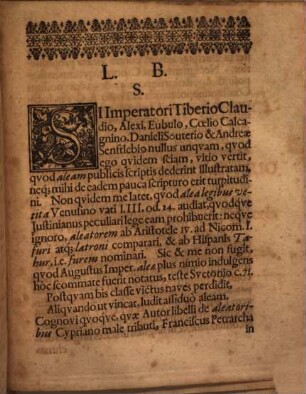 L. B.
S.
SI Imperatori Tiberio Clau-
dio, Alexi, Eubulo, Cœlio Calca-
gnino, Danieli Souterio & Andreæ
Senftlebio nullus unqvam, qvod
ego qvidem sciam, vitio vertit,
qvod aleam publicis scriptis dederint illustratam,
neqʒ mihi de eadem pauca scripturo erit turpitudi-
ni. Non qvidem me latet, qvod alea legibus ve-
tita Venusino vati l. III. od. 24. audiat, qvodqve
Justinianus peculiari lege eam prohibuerit: neqve
ignoro, aleatorem ab Aristotele IV. ad Nicom. I.
furi atqʒ latroni comparari, & ab Hispanis Ta-
hur, i.e. furem nominari. Sic & me non fugit,
qvod Augustus Imper. aleæ plus nimio indulgens
hoc scommate fuerit notatus, teste Svetonio c. 71.
Postqvam bis classe victus naves perdidit,
Aliqvando ut vincat, ludit assiduò aleam.
Cognovi qvoqve, qvæ Autor libelli de aleatori-
bus Cypriano male tributi, Franciscus Petrarcha
in